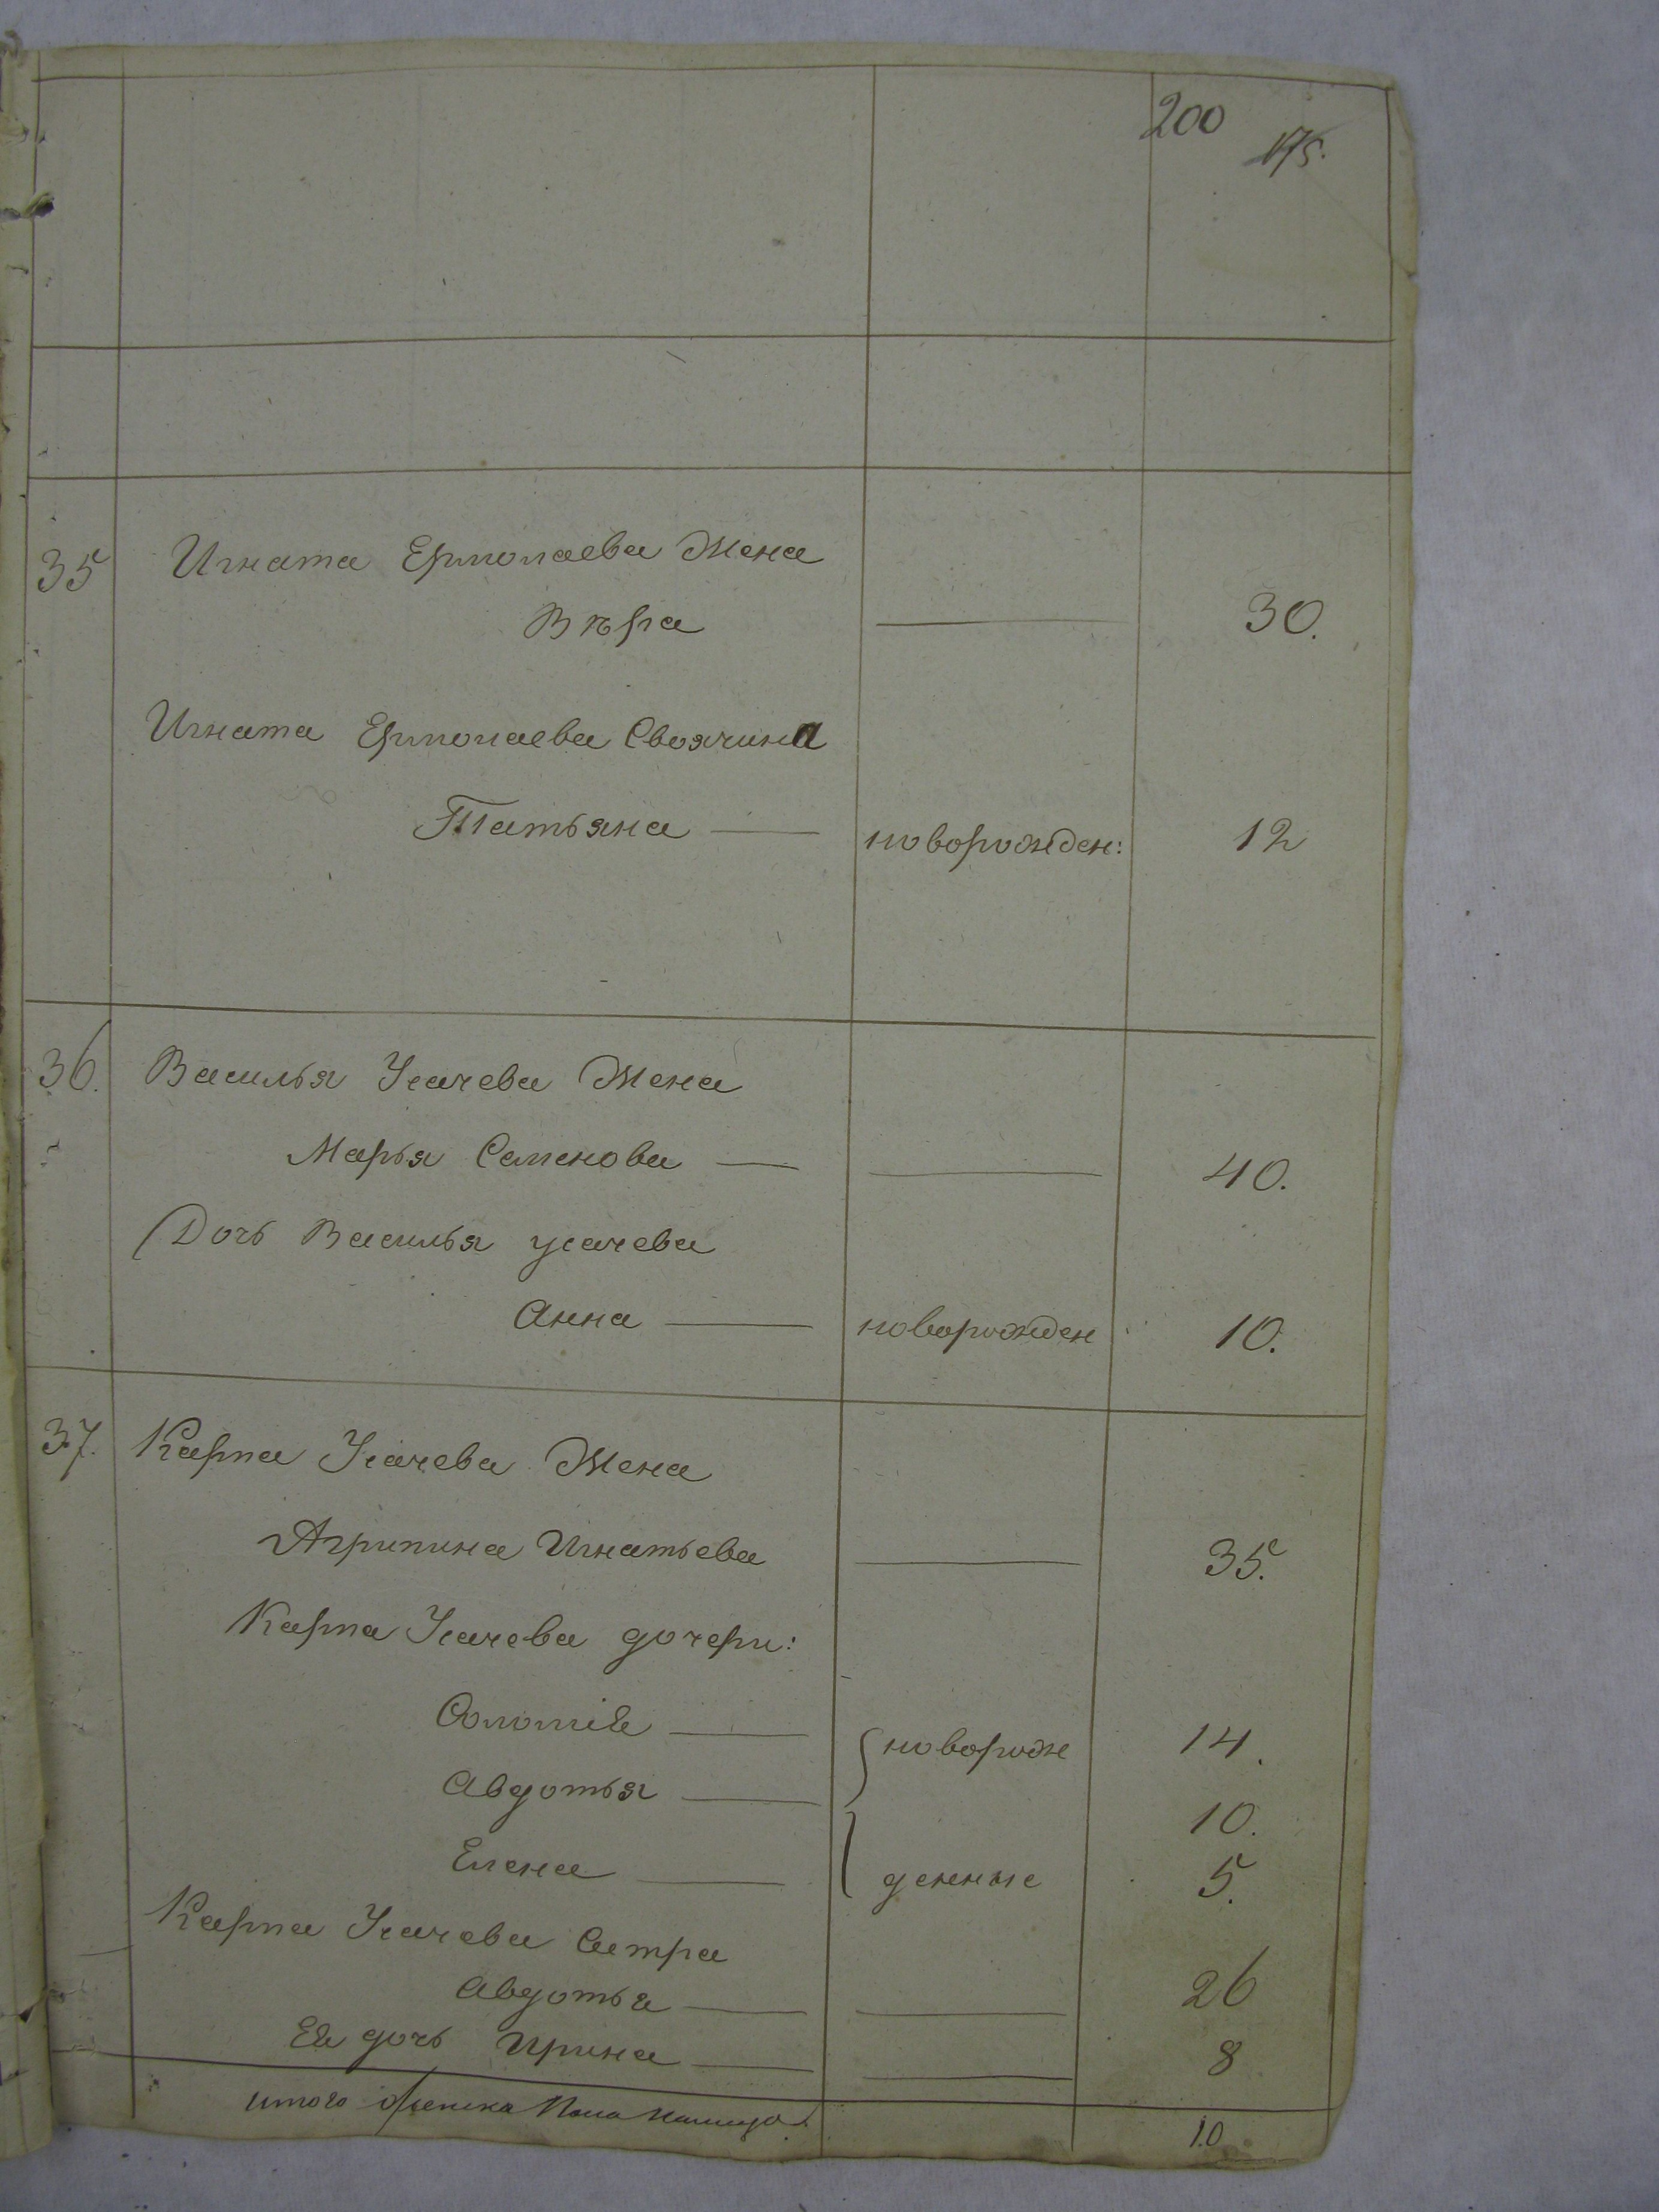 200
175.
35 Игната Ермолаева Жена
Вѣра 30.
Игната Ермолаева Своячина
Татьяна новорожден: 12
36. Василья Усачева Жена
Марья Семенова 40.
Дочь Василья усачева
Анна новорожден 10.
37. Карпа Усачева Жена
Агрипина Игнатьева 35.
Карпа Усачева дочери:
Соломія новорож 14.
Авдотья 10.
Елена денные 5.
Карпа Усачева Сестра
Авдотья 26
Ея дочь Ирина 8
итого женска Пола налицо 10